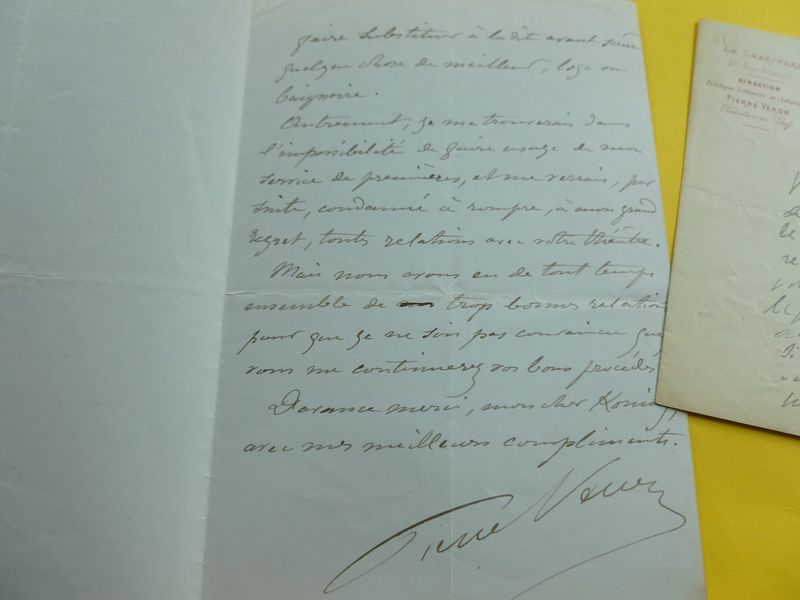 faire substituer à ladit avant scène
quelque chose de meilleur, loge ou
baignoire.
Autrement, je me trouverais dans
l'impossibilité de faire usage de mon
service de premières, et me verrais, par
suite, condamné à rompre, à mon grand
regret, toute relations avec votre théâtre.
Mais nous avons eu de tout temps
ensemble de trop bonnes relations
pour que je ne sois pas convaincu que
vous me continuerez vos bons procédés
D'avance merci, mon cher Koning,
avec mes meilleurs compliments.
Pierre Véron
LE CHARIVARI
DIRECTION
Politique, Littéraire et Artistique
PIERRE VÉRON
Rédacteur en Chef